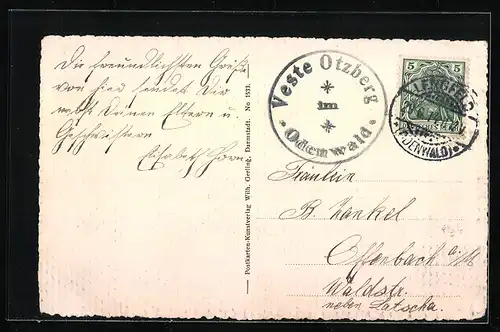 Die freundlichsten Grüße
von hier sendet Dir
nebst Deinen Eltern u.
Geschwistern
Elisabeth
Postkarten-Kunstverlag Wilh. Gerling, Darmstadt. No 1531.
Veste Otzberg
im
Odenwald
5 5
LENGFELD
(ODENWALD)
Fräulein
B. Hankel
Offenbach a/M
Waldstr.
neben Latscha.